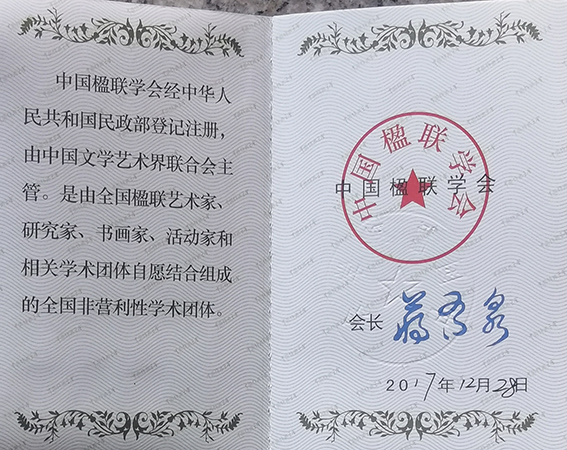 中国楹联学会经中华人
民共和国民政部登记注册，
由中国文学艺术界联合会主
管。是由全国楹联艺术家、
研究家、书画家、活动家和
相关学术团体自愿结合组成
的全国非营利性学术团体。
中国楹联学会
中国楹联学会
会长 蒋有泉
2017年12月28日